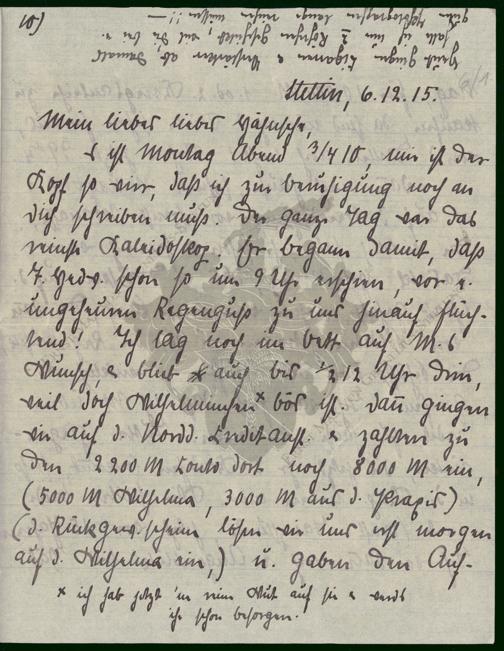 10)
Stettin, 6.12.15.
Mein lieber lieber
ist Montag Abend 3/4 10, mir ist der
Kopf so wirr, daß ich zur beruhigung noch an
dich schreiben muß. Der ganze Tag war das
reinste Kaleidoskop. Er begann damit, daß
schon so um 9 Uhr erschien, vor e.
ungeheuren Regenguß zu uns hinauf flüch-
tend! Ich lag noch im bett auf M.s
Wunsch, & blieb auch bis 1/2 12 Uhr drin,
weil doch Wilhelminchen x bös ist. dann gingen
wir auf d. Nordd. Creditanst. & zahlten zu
den 2200 M Conto dort noch 8000 M ein,
(5000 M Wilhelma, 3000 M aus d.
(d. Rückgew. scheine lösen wir uns erst morgen
auf d. Wilhelma ein,) u. gaben den Auf-
x ich hab jetzt 'ne reine Wut auf sie & werds
ihr schon besorgen.